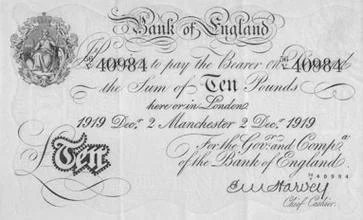 Bank of England
56/V 40984 to pay the Bearer on 56/V 40984
the Sum of Ten Pounds
here or in London.
1919 Decr. 2 Manchester 2 Decr. 1919
For the Govr. and Compa.
of the Bank of England.
Ten
40984
E.M. Harvey
Chief Cashier.